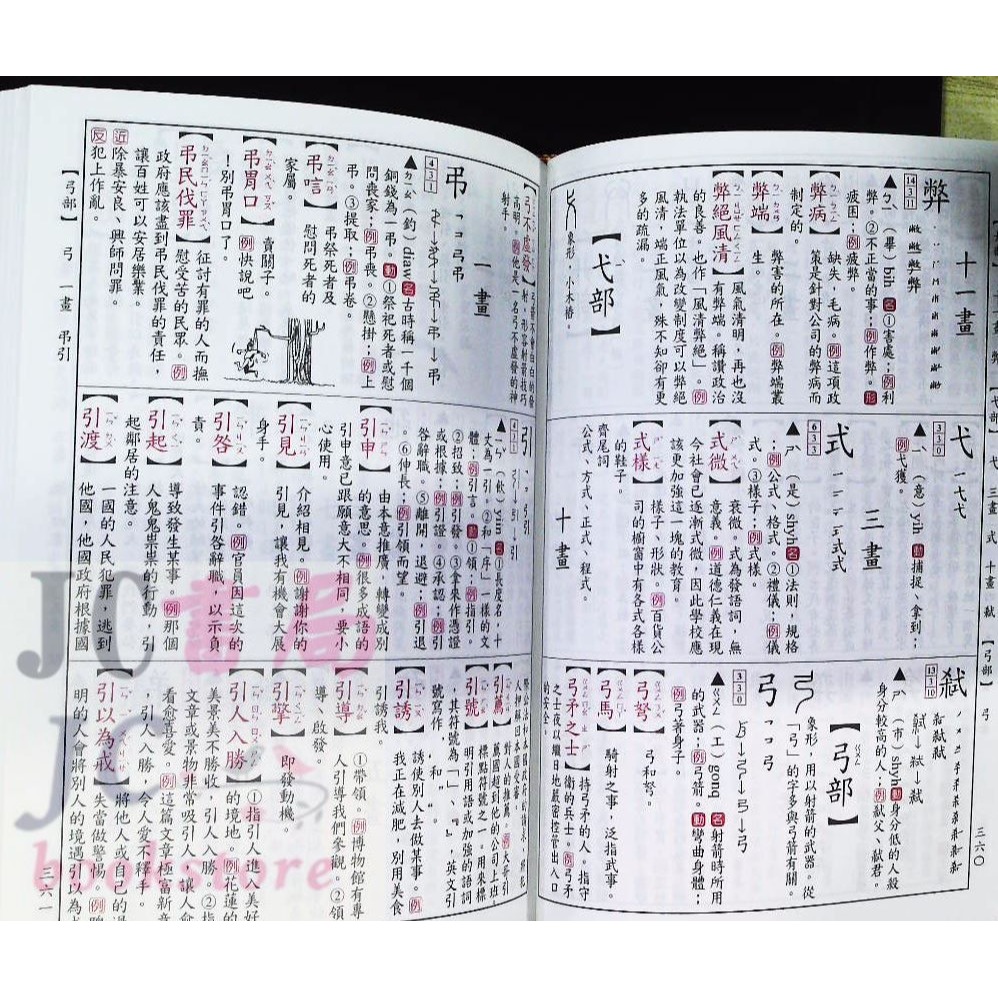 十一畫
弊
14
3
11
▲ㄅㄧˋ(畢)bih 名①害處;例利
弊。②不正當的事;例作弊。形
疲困;例疲弊。
【弊病】缺失,毛病。例這項政
策是針對公司的弊病而
制定的。
【弊端】弊害的所在。例弊端叢
生。
【弊絕風清】風氣清明,再也沒
有弊端。稱讚政治
的良善。也作「風清弊絕」。例
執法單位以為改變制度可以弊絕
風清,端正風氣,殊不知卻有更
多的疏漏。
【弋部】
象形,小木樁。
弋
3
3
0
一弋弋
▲ㄧˋ(意)yih 動捕捉、拿到;
例弋獲。
三畫
式
6
3
3
▲ㄕˋ(是)shyh 名①法則、規格
;例公式、格式。②禮儀;例儀
式。③樣子;例式樣。
【式微】衰微。式為發語詞,無
意義。例道德仁義在現
今社會已逐漸式微,因此學校應
該更加強這一塊的教育。
【式樣】樣子、形狀。例百貨公
司的櫥窗中有各式各樣
的鞋子。
齊尾詞
公式、方式、正式、程式。
十畫
弒
13
3
10
▲ㄕˋ(市)shyh 動身分低的人殺
身分較高的人;例弒父、弒君。
【弓部】
象形,用以射箭的武器。從
「弓」的字多與弓箭有關。
弓
3
3
0
▲ㄍㄨㄥ(工)gong 名射箭時所用
的武器;例弓箭。動彎曲身體;
例弓著身子。
【弓弩】弓和弩。
【弓馬】騎射之事,泛指武事。
【弓矛之士】持弓矛的人。指守
衛的兵士。例弓矛
之士夜以繼日地嚴密控管出入口
的安全。
三六〇
【弓不虛發】
射手。
一畫
弔
4
3
1
▲ㄉㄧㄠˋ(釣)diaw 名古時稱一千個
銅錢為一弔。動①祭祀死者或慰
問喪家;例弔喪。②懸掛;例上
弔。③提取;例弔卷。
【弔唁】弔祭死者及
慰問死者的
家屬。
【弔胃口】賣關子。
例快說吧
!別弔胃口了。
【弔民伐罪】征討有罪的人而撫
慰受苦的民眾。例
政府應該盡到弔民伐罪的責任,
讓百姓可以安居樂業。
近除暴安良、興師問罪。
反犯上作亂。
引
4
3
1
▲ㄧㄣˇ(飲)yiin 名①長度名,十
丈為一引。②和「序」一樣的文
體;例引言。動①領、指;例指引。
②招致;例引發。③拿來作憑證
或根據;例引證。④承認;例引
咎辭職。⑤離開,退避;例引退
。⑥伸長;例引領而望。
【引申】由本意推廣,轉變成別
的意思。例很多成語的
引申意已跟原意大不相同,要小
心使用。
【引見】介紹相見。例謝謝你的
引見,讓我有機會大展
身手。
【引咎】認錯。例官員因這次的
事件引咎辭職,以示負
責。
【引起】導致發生某事。例那個
人鬼鬼祟祟的行動,引
起鄰居的注意。
【引渡】一國的人民犯罪,逃到
他國,他國政府根據國
【引薦】
【引號】標點符號之一。用來標
明引用語或加強的語詞
【引誘】誘使別人去做某事。例
我正在減肥,別用美食
引誘我。
【引導】①帶領。例博物館有專
人引導我們參觀。②領
導、啟發。
【引擎】即發動機。
【引人入勝】①指引人進入美好
的境地。例花蓮的
美景美不勝收,引人入勝。②指
文章或景物非常吸引人,讓人愈
看愈喜愛。例這篇文章極富新意
,引人入勝,令人愛不釋手。
【引以為戒】將他人或自己的過
失當做警惕。例聰
明的人會將別人的境遇引以為
【弓部】 弓 一畫 弔引
三六一
JC書局
JC
bookstore